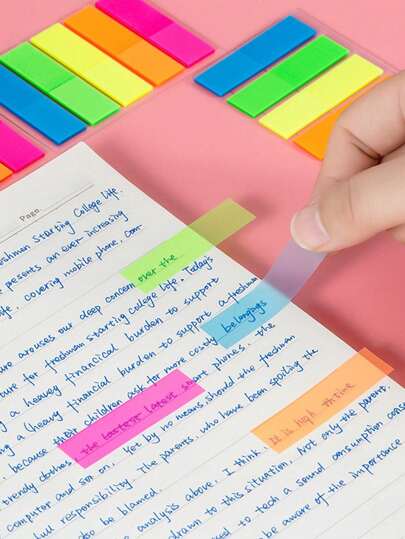 Page
freshman starting College life.
presents an ever increasing
life, covering mobile phone, com
over the
ure arouses our deep concern
ture for freshman starting college life. Today's
ng a heaveg financical burden to support
ng a (heavy financial burden to support a freshman
because their children ask for more costly belongings
the lastest latest smare phones, the
trendy clothes
computer and son on. Yet by no means, should the freshman
full responsibility. The parents, who have been spoiling the
also be blamed. It is high thrise
analysis above, I think,
drawn to this situation, Not only the parent,
used to tech a sound consumption conse
be aware of the importance